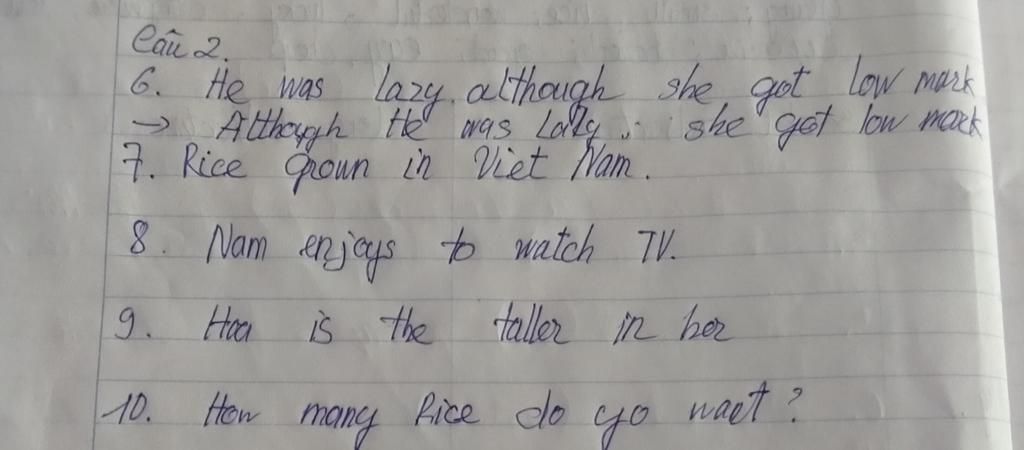 Câu 2.
6. He was lazy. although she got low mark
→ Although He was lazy . she got low mark
7. Rice grown in Viet Nam.
8. Nam enjoys to watch TV.
9. Hoa is the taller in her
10. How many Rice do yo waet ?